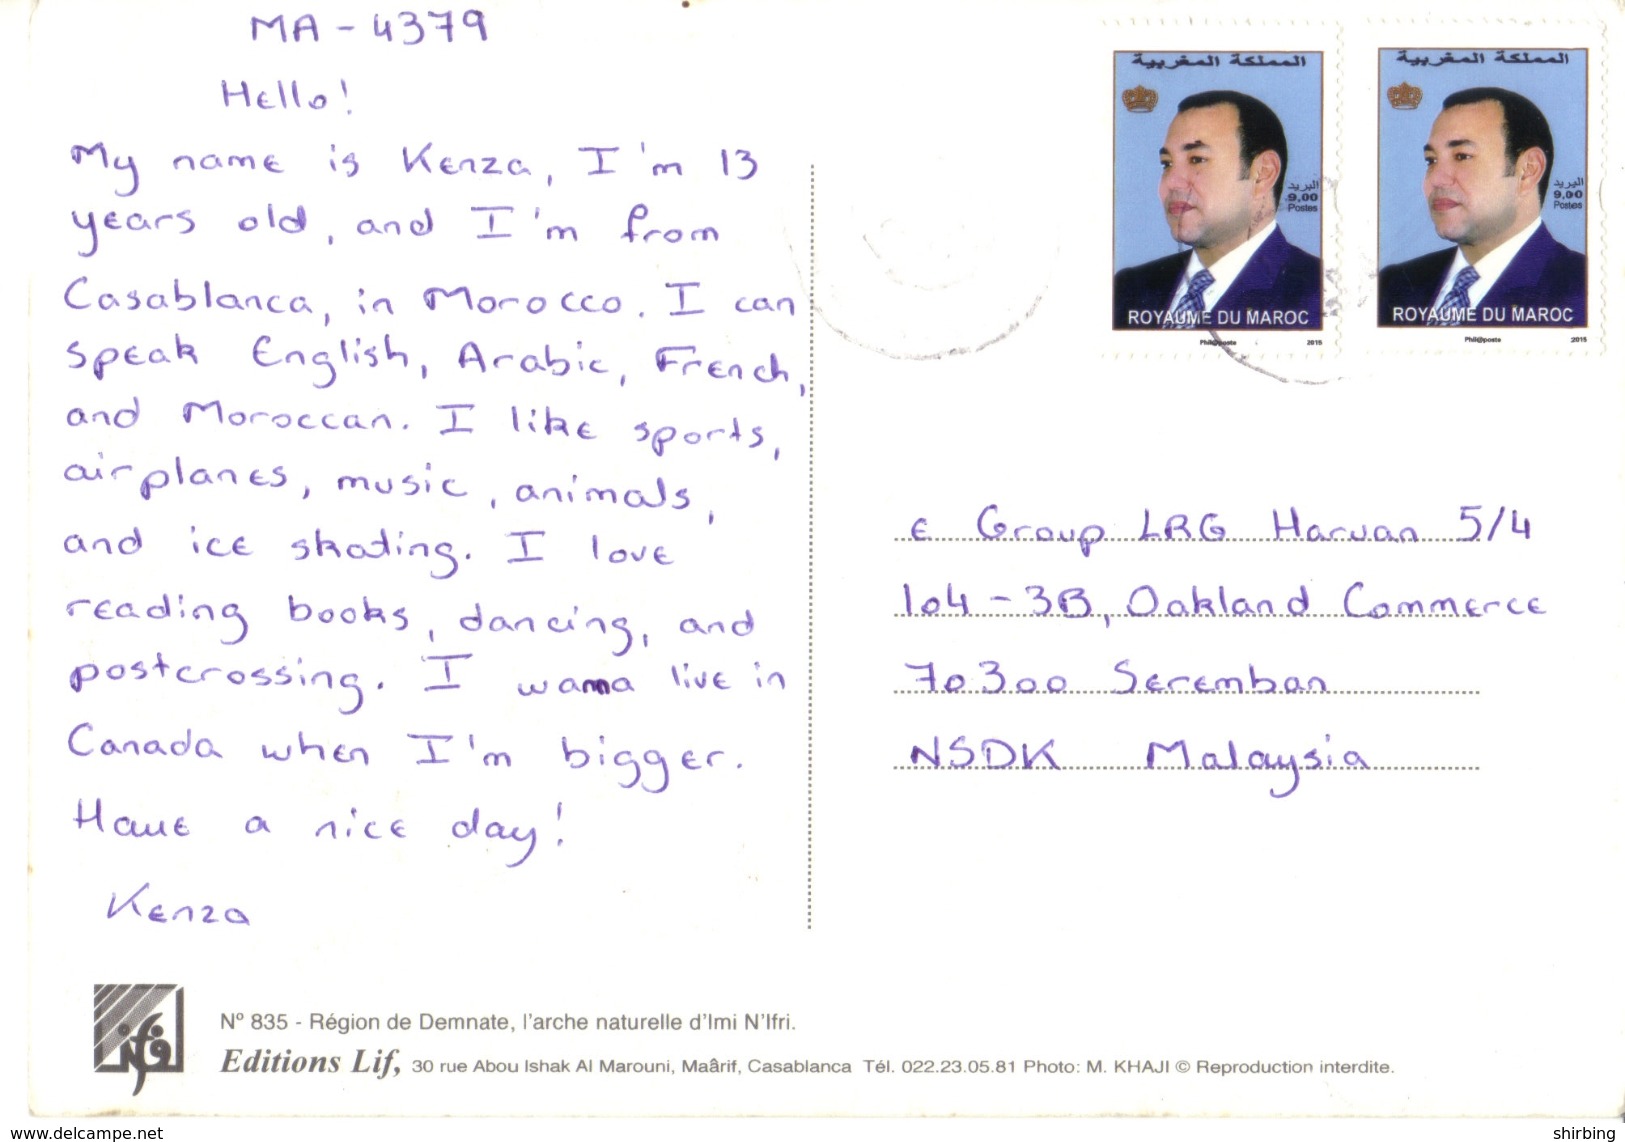 MA - 4379
Hello!
My name is Kenza, I'm 13
years old, and I'm from
Casablanca, in Morocco. I can
speak English, Arabic, French,
and Moroccan. I like sports,
airplanes, music, animals,
and ice skating. I love
reading books, dancing, and
postcrossing. I wanna live in
Canada when I'm bigger.
Have a nice day!
Kenza
المملكة المغربية
البريد
9,00
Postes
ROYAUME DU MAROC
Phil@poste 2015
المملكة المغربية
البريد
9,00
Postes
ROYAUME DU MAROC
Phil@poste 2015
e Group LRG Haruan 5/4
104 - 3B, Oakland Commerce
70300 Seremban
NSDK Malaysia
N° 835 - Région de Demnate, l'arche naturelle d'Imi N'Ifri.
Editions Lif, 30 rue Abou Ishak Al Marouni, Maârif, Casablanca Tél. 022.23.05.81 Photo: M. KHAJI © Reproduction interdite.
www.delcampe.net
shirbing